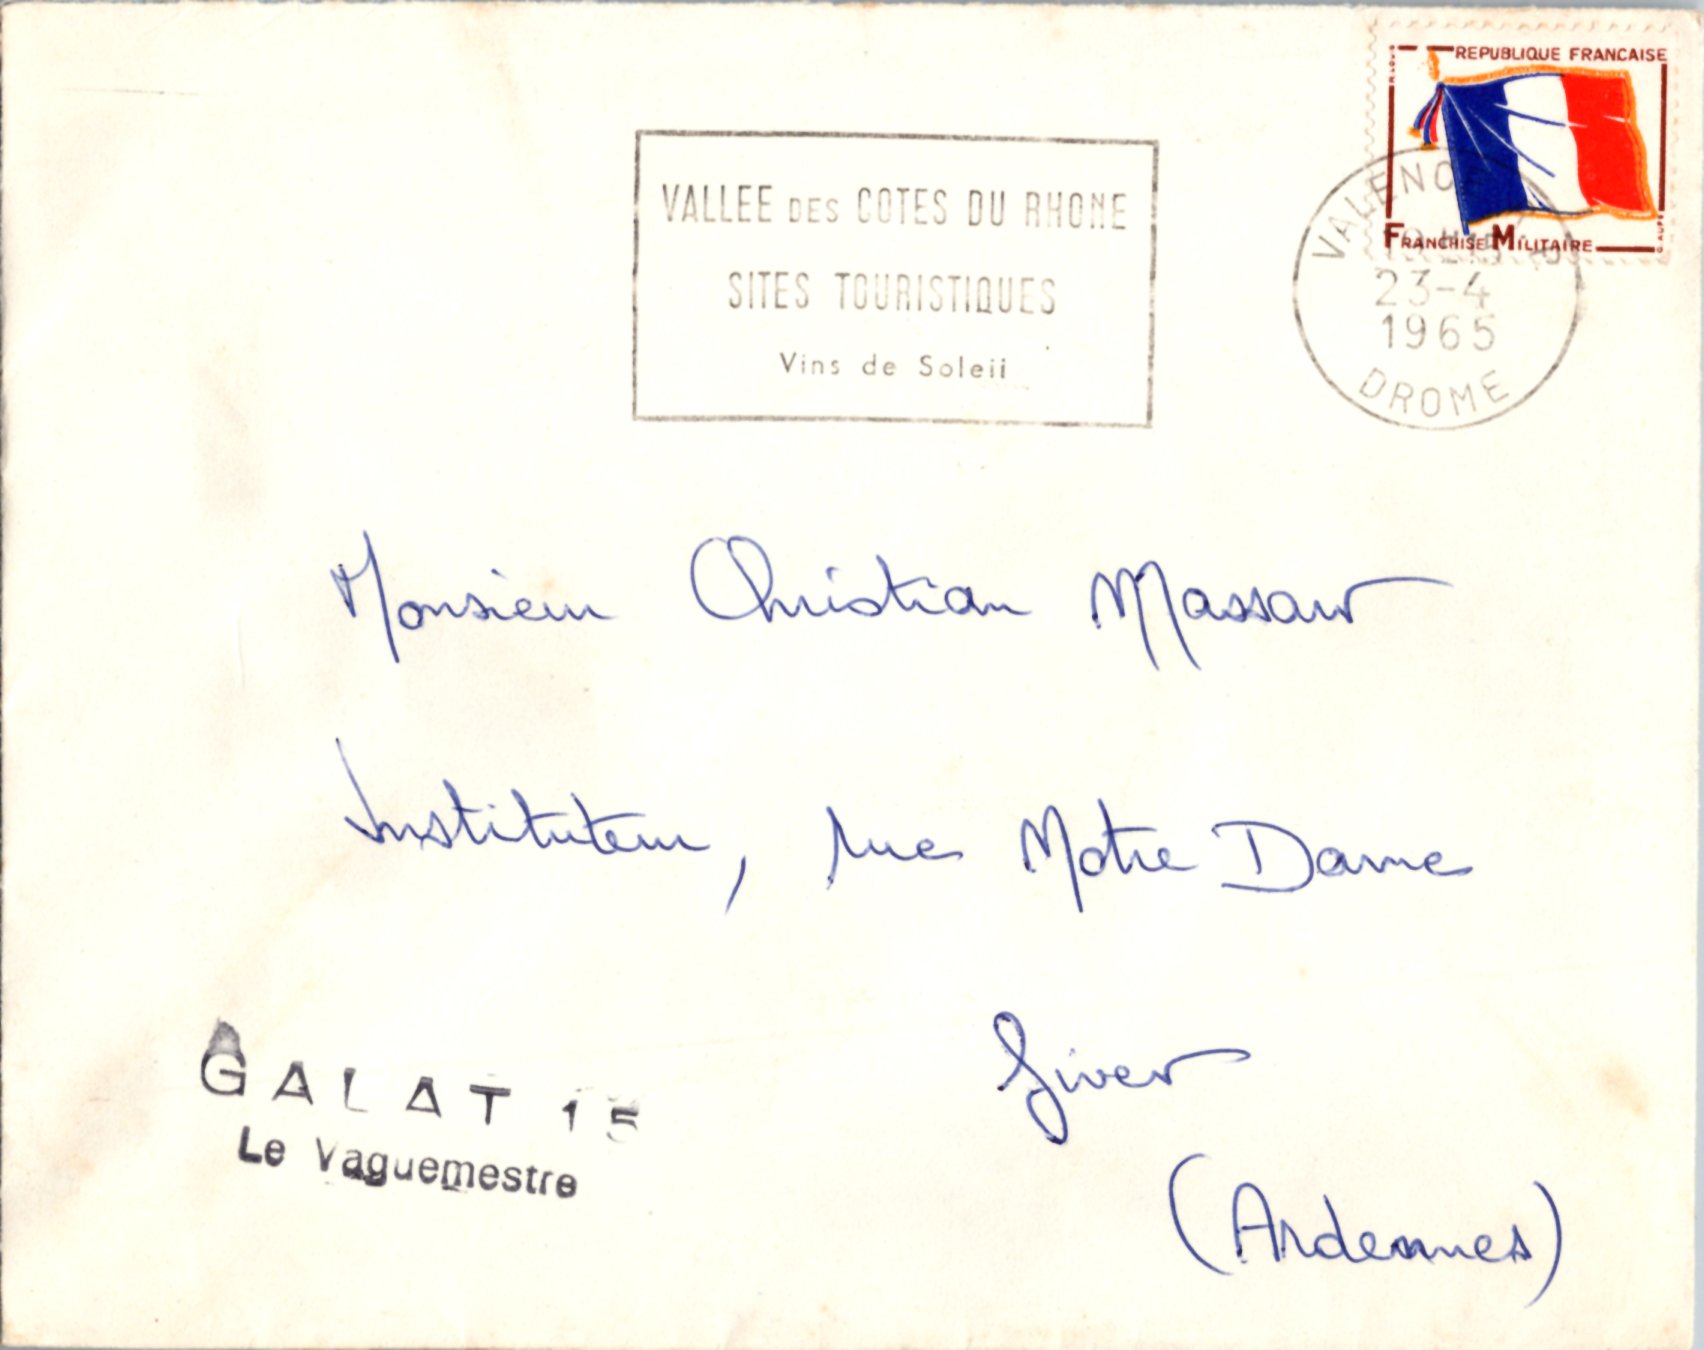 REPUBLIQUE FRANCAISE
FRANCHISE MILITAIRE
VALLEE DES COTES DU RHONE
SITES TOURISTIQUES
Vins de Soleil
VALENCE
23-4
1965
DROME
Monsieur Christian
Instituteur, rue Notre Dame
Givet
(Ardennes)
GALAT 15
Le Vaguemestre